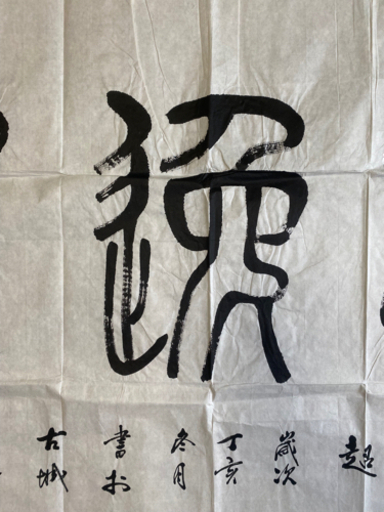 逸
超
歲次
丁亥
冬月
書於
古城